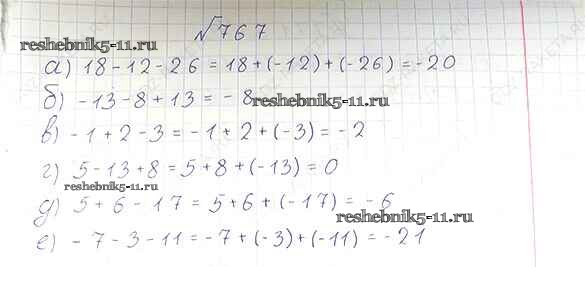 № 767
reshebnik5-11.ru
а) 18 - 12 - 26 = 18 + (-12) + (-26) = -20
б) -13 - 8 + 13 = -8
reshebnik5-11.ru
в) -1 + 2 - 3 = -1 + 2 + (-3) = -2
г) 5 - 13 + 8 = 5 + 8 + (-13) = 0
reshebnik5-11.ru
д) 5 + 6 - 17 = 5 + 6 + (-17) = -6
reshebnik5-11.ru
е) -7 - 3 - 11 = -7 + (-3) + (-11) = -21